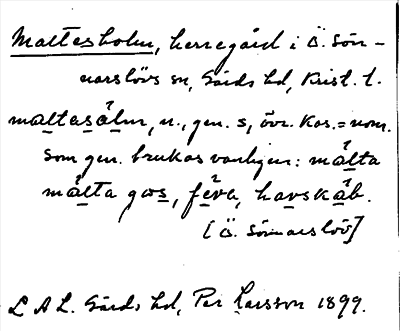 Maltesholm, herregård i Ö. Sön-
narslövs sn, Gärds hd, Krist. l.
maltasålm, n., gen. s, övr. kas. = nom.
Som gen. brukas vanligen: målta
målta gos, feva, havskåb.
[Ö. Sönnarslöv]
L A L. Gärds hd, Per Larsson 1899.